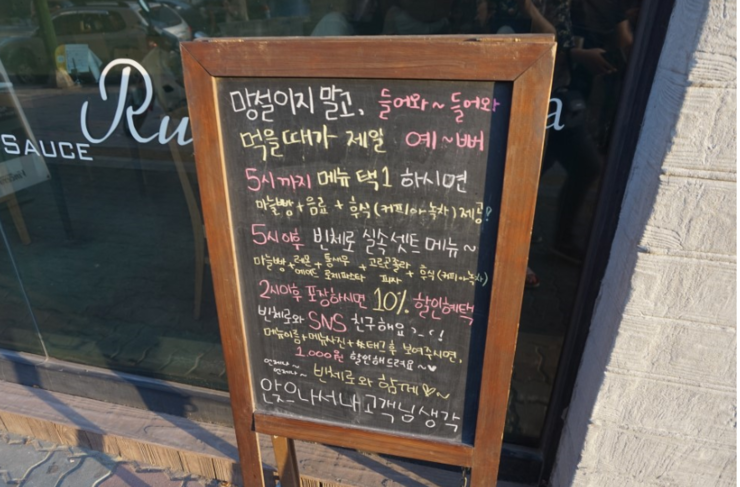 Ru
SAUCE
a
망설이지 말고, 들어와~ 들어와
먹을때가 제일 예~뻐
5시까지 메뉴 택1 하시면
마늘빵+음료 + 후식(커피아녹차)제공!
5시이후 빈체로 실속셋트 메뉴~
마늘빵+레몬에이드+통새우로제파스타+고르곤졸라피자+후식(커피아녹차)
2시이후 포장하시면 10% 할인혜택
빈체로와 SNS 친구해요
메뉴이름+메뉴사진+#태그후 보여주시면,
1,000원 할인해드려요~♥
언제나~ 언제나~ 빈체로와 함께♡~
앉으나서나고객님생각